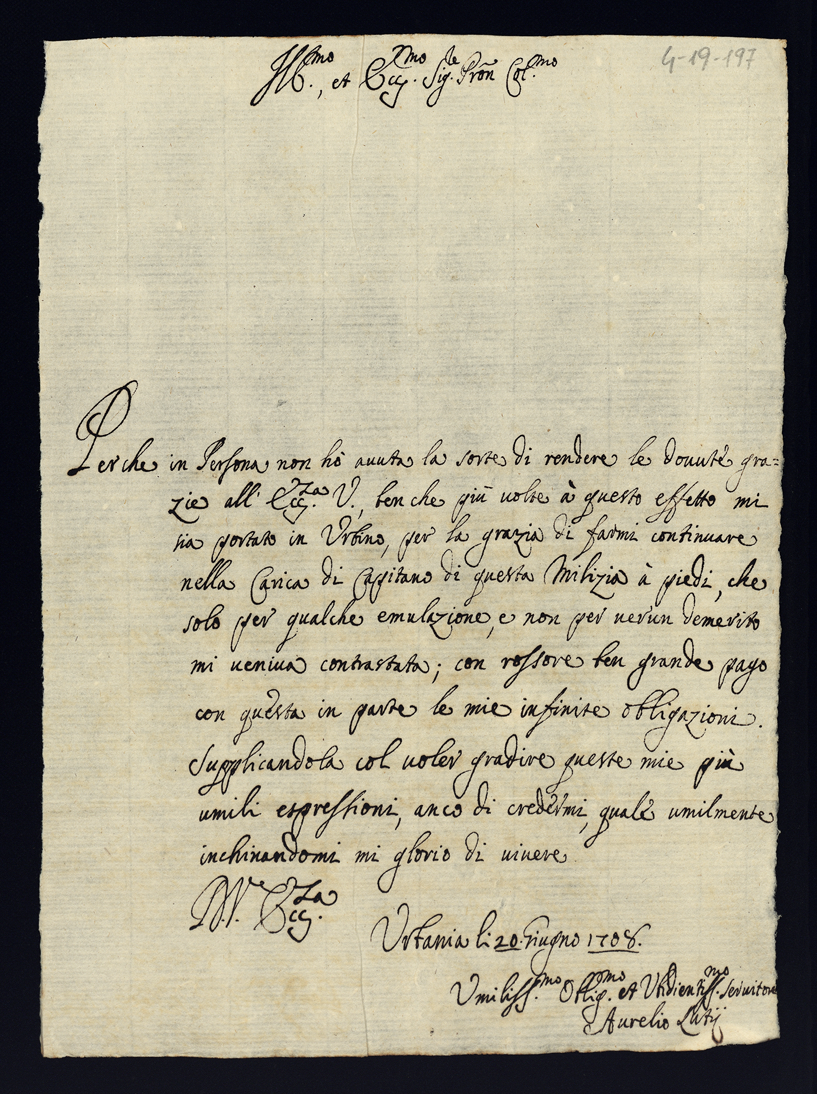 4-19-197
Ill.mo, et Ecc.mo Sig.re Pron Col.mo
Perche in Persona non hò auuta la sorte di rendere le douute gra=
zie all' Ecc.za V., ben che più uolte à questo effetto mi
sia portato in Vrbino, per la grazia di farmi continuare
nella Carica di Capitano di questa Milizia à piedi, che
solo per qualche emulazione, e non per uerun demerito
mi ueniua contrastata; con rossore ben grande pago
con questa in parte le mie infinite obligazioni.
Supplicandola col uoler gradire queste mie più
umili espressioni, anco di credermi, quale umilmente
inchinandomi mi glorio di uiuere
D. V. Ecc.za
Vrbania li 20. Giugno 1708.
Vmiliss.mo Oblig.mo et Vbidientiss.mo Seruitore
Aurelio Lutij